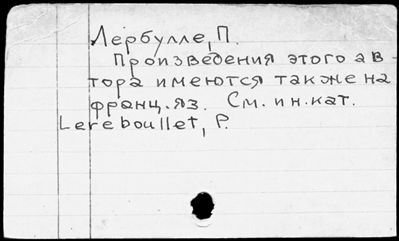 Лербулле, П.
Произведения этого ав-
тора имеются также на
франц. яз. См. ин. кат.
Lereboullet, P.